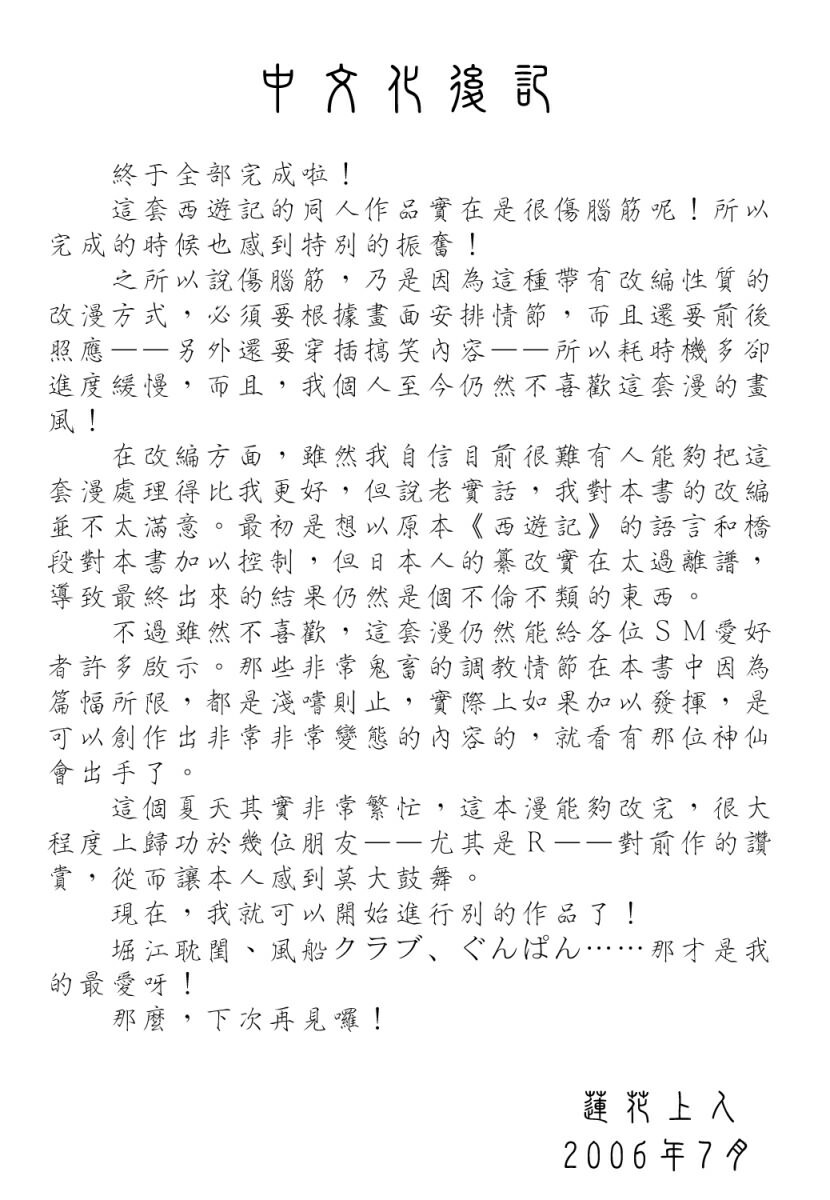 中文化後記
終于全部完成啦！
這套西遊記的同人作品實在是很傷腦筋呢！所以
完成的時候也感到特別的振奮！
之所以說傷腦筋，乃是因為這種帶有改編性質的
改漫方式，必須要根據畫面安排情節，而且還要前後
照應——另外還要穿插搞笑內容——所以耗時機多卻
進度緩慢，而且，我個人至今仍然不喜歡這套漫的畫
風！
在改編方面，雖然我自信目前很難有人能夠把這
套漫處理得比我更好，但說老實話，我對本書的改編
並不太滿意。最初是想以原本《西遊記》的語言和橋
段對本書加以控制，但日本人的纂改實在太過離譜，
導致最終出來的結果仍然是個不倫不類的東西。
不過雖然不喜歡，這套漫仍然能給各位ＳＭ愛好
者許多啟示。那些非常鬼畜的調教情節在本書中因為
篇幅所限，都是淺嚐則止，實際上如果加以發揮，是
可以創作出非常非常變態的內容的，就看有那位神仙
會出手了。
這個夏天其實非常繁忙，這本漫能夠改完，很大
程度上歸功於幾位朋友——尤其是Ｒ——對前作的讚
賞，從而讓本人感到莫大鼓舞。
現在，我就可以開始進行別的作品了！
堀江耽閨、風船クラブ、ぐんぱん……那才是我
的最愛呀！
那麼，下次再見囉！
蓮花上人
2006年7月